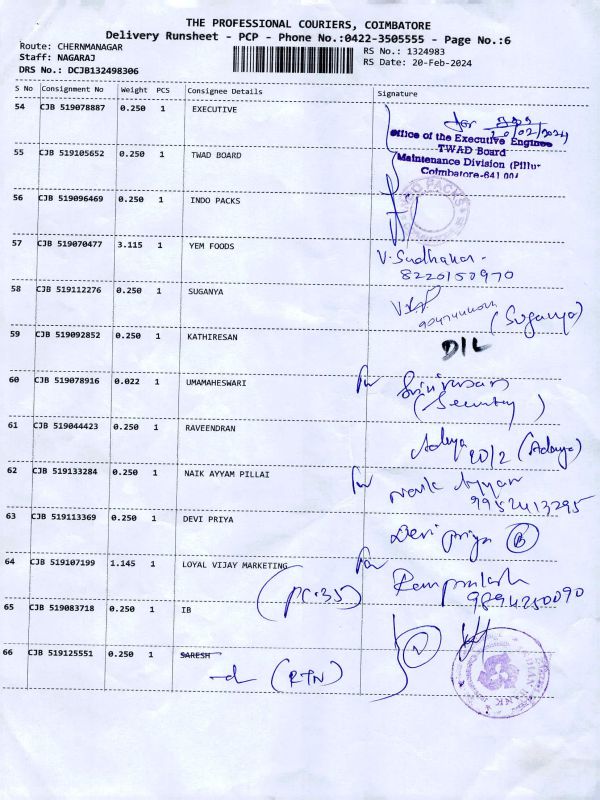 THE PROFESSIONAL COURIERS, COIMBATORE
Delivery Runsheet - PCP - Phone No.:0422-3505555 - Page No.:6
Route: CHERNMANAGAR
RS No.: 1324983
Staff: NAGARAJ
RS Date: 20-Feb-2024
DRS No.: DCJB132498306
S No Consignment No Weight PCS Consignee Details Signature
54 CJB 519078887 0.250 1 EXECUTIVE
20/02/2024
Office of the Executive Enginee
55 CJB 519105652 0.250 1 TWAD BOARD
TWAD Board
Maintenance Division (Pillur
Coimbatore-641 004
56 CJB 519096469 0.250 1 INDO PACKS
57 CJB 519070477 3.115 1 YEM FOODS
V. Sudhakar -
8220150970
58 CJB 519112276 0.250 1 SUGANYA
(Suganya)
59 CJB 519092852 0.250 1 KATHIRESAN
D/L
60 CJB 519078916 0.022 1 UMAMAHESWARI
for Srinivasan
(Security)
61 CJB 519044423 0.250 1 RAVEENDRAN
Adaya 20/2 (Adaya)
62 CJB 519133284 0.250 1 NAIK AYYAM PILLAI
for Naik Ayyam
9952413295
63 CJB 519113369 0.250 1 DEVI PRIYA
Devi priya
64 CJB 519107199 1.145 1 LOYAL VIJAY MARKETING
for Ramprakash
9894250090
(pc.35)
65 CJB 519083718 0.250 1 IB
66 CJB 519125551 0.250 1 SARESH
(RTN)